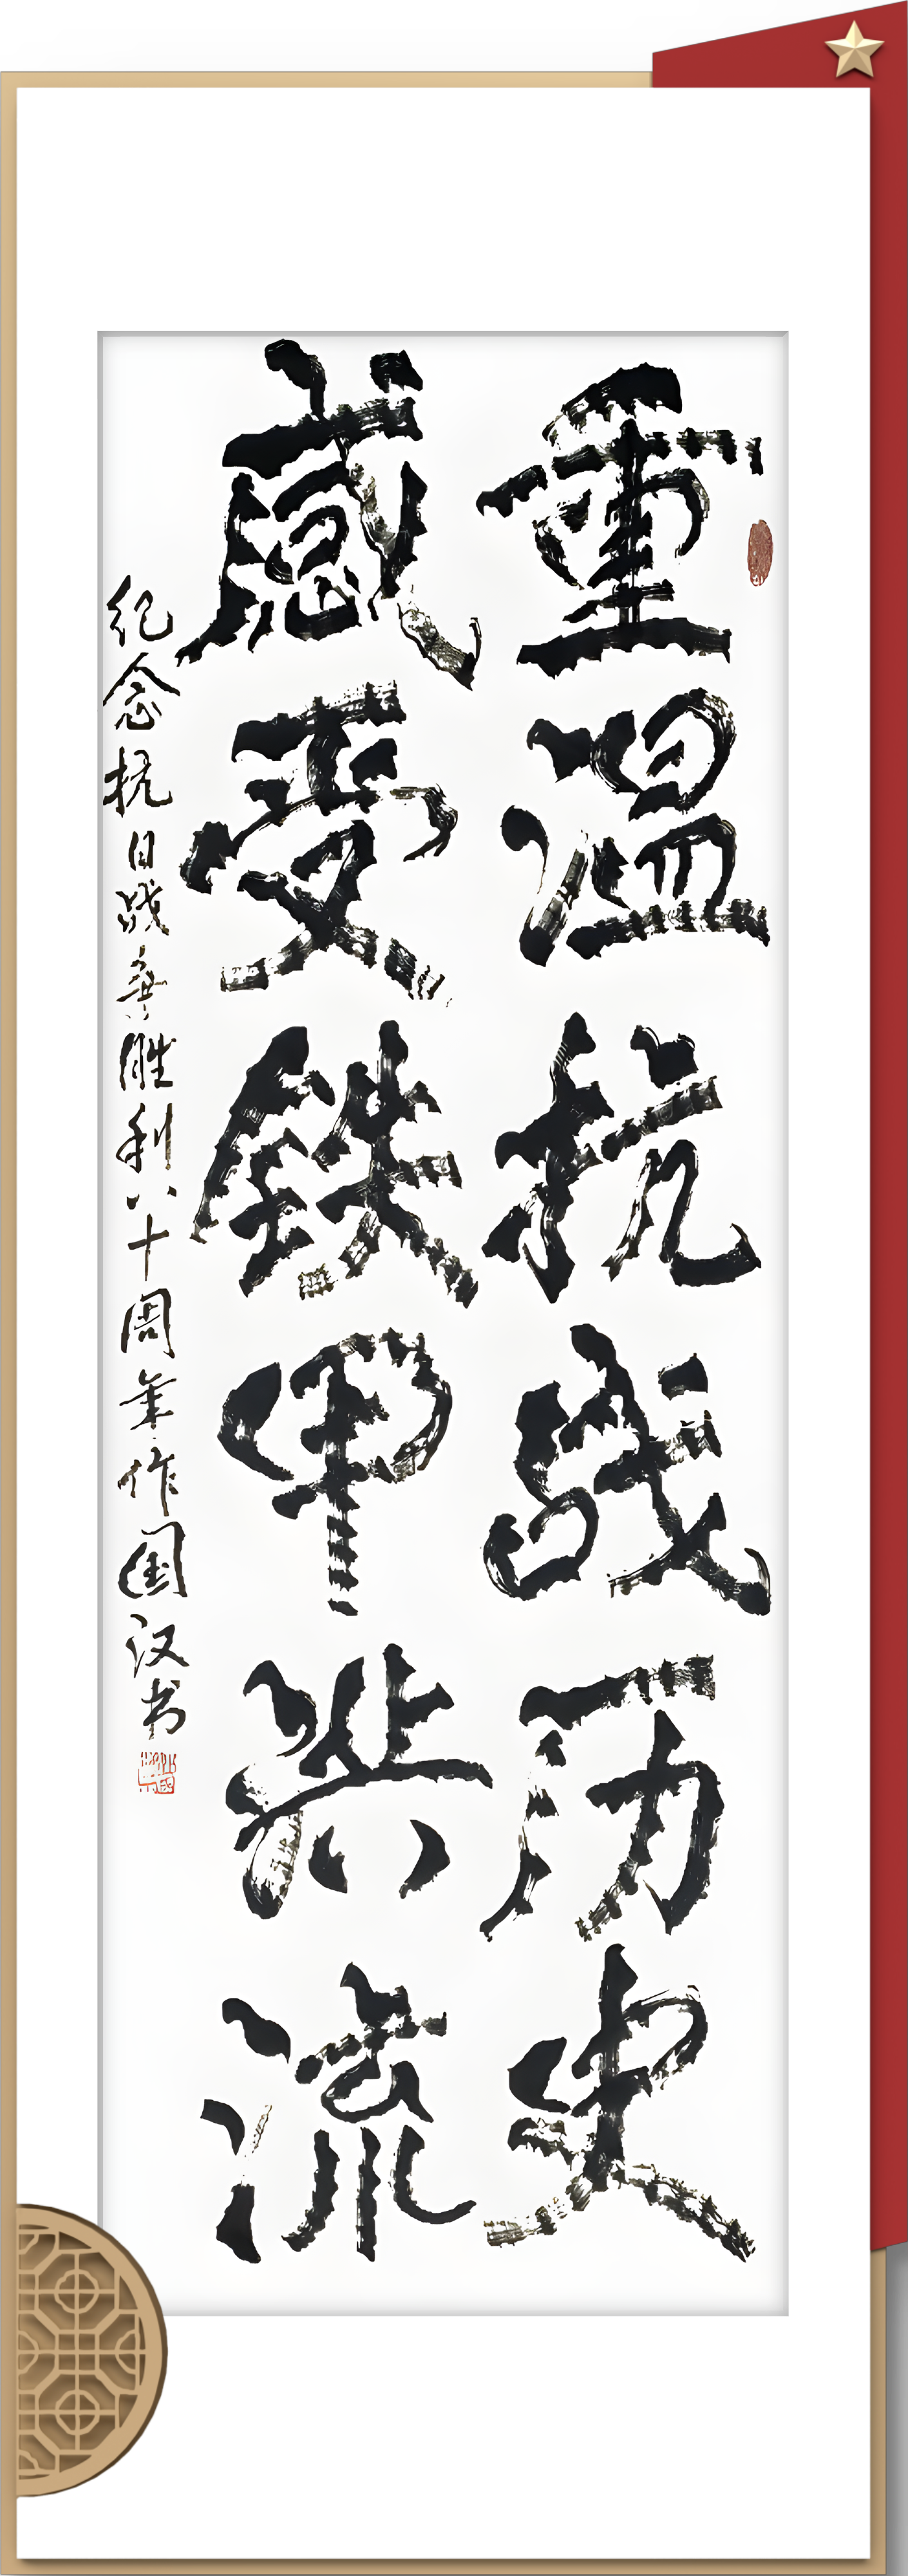 重温抗战历史
感受铁甲洪流
纪念抗日战争胜利八十周年作国汉书